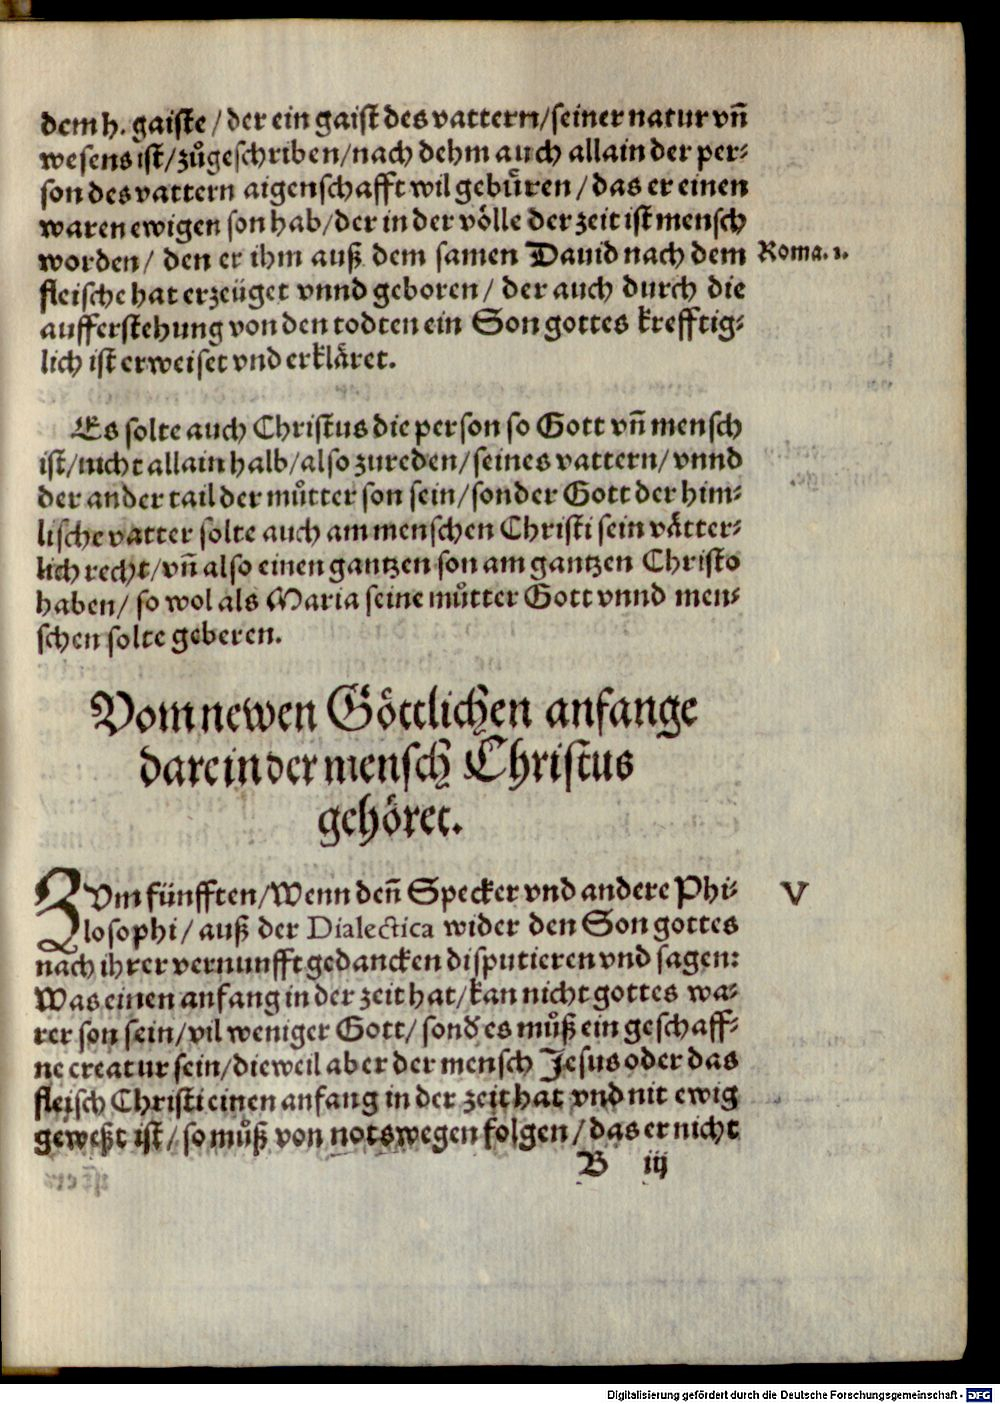 dem h. gaiste / der ein gaist des vattern/seiner natur vn̄
wesens ist/zůgeschriben/nach dehm auch allain der per⸗
son des vattern aigenschafft wil gebüren / das er einen
waren ewigen son hab/der in der völle der zeit ist mensch
worden/ den er ihm auß dem samen Dauid nach dem Roma. 1.
fleische hat erzeüget vnnd geboren/ der auch durch die
aufferstehung von den todten ein Son gottes krefftig⸗
lich ist erweiset vnd erkläret.
Es solte auch Christus die person so Gott vn̄ mensch
ist/nicht allain halb/also zureden/seines vattern/ vnnd
der ander tail der můtter son sein/sonder Gott der him⸗
lische vatter solte auch am menschen Christi sein vätter⸗
lich recht/vn̄ also einen gantzen son am gantzen Christo
haben/ so wol als Maria seine můtter Gott vnnd men⸗
schen solte geberen.
Vom newen Göttlichen anfange
darein der mensch Christus
gehöret.
ZVm fünfften/Wenn den̄ Specker vnd andere Phi⸗ V
losophi/ auß der Dialectica wider den Son gottes
nach ihrer vernunfft gedancken disputieren vnd sagen:
Was einen anfang in der zeit hat/kan nicht gottes wa⸗
rer son sein/vil weniger Gott/ sond'es můß ein geschaff⸗
ne creatur sein/dieweil aber der mensch Jesus oder das
fleisch Christi einen anfang in der zeit hat vnd nit ewig
geweßt ist/ so můß von notswegen folgen/ das er nicht
B iij
Digitalisierung gefördert durch die Deutsche Forschungsgemeinschaft - DFG